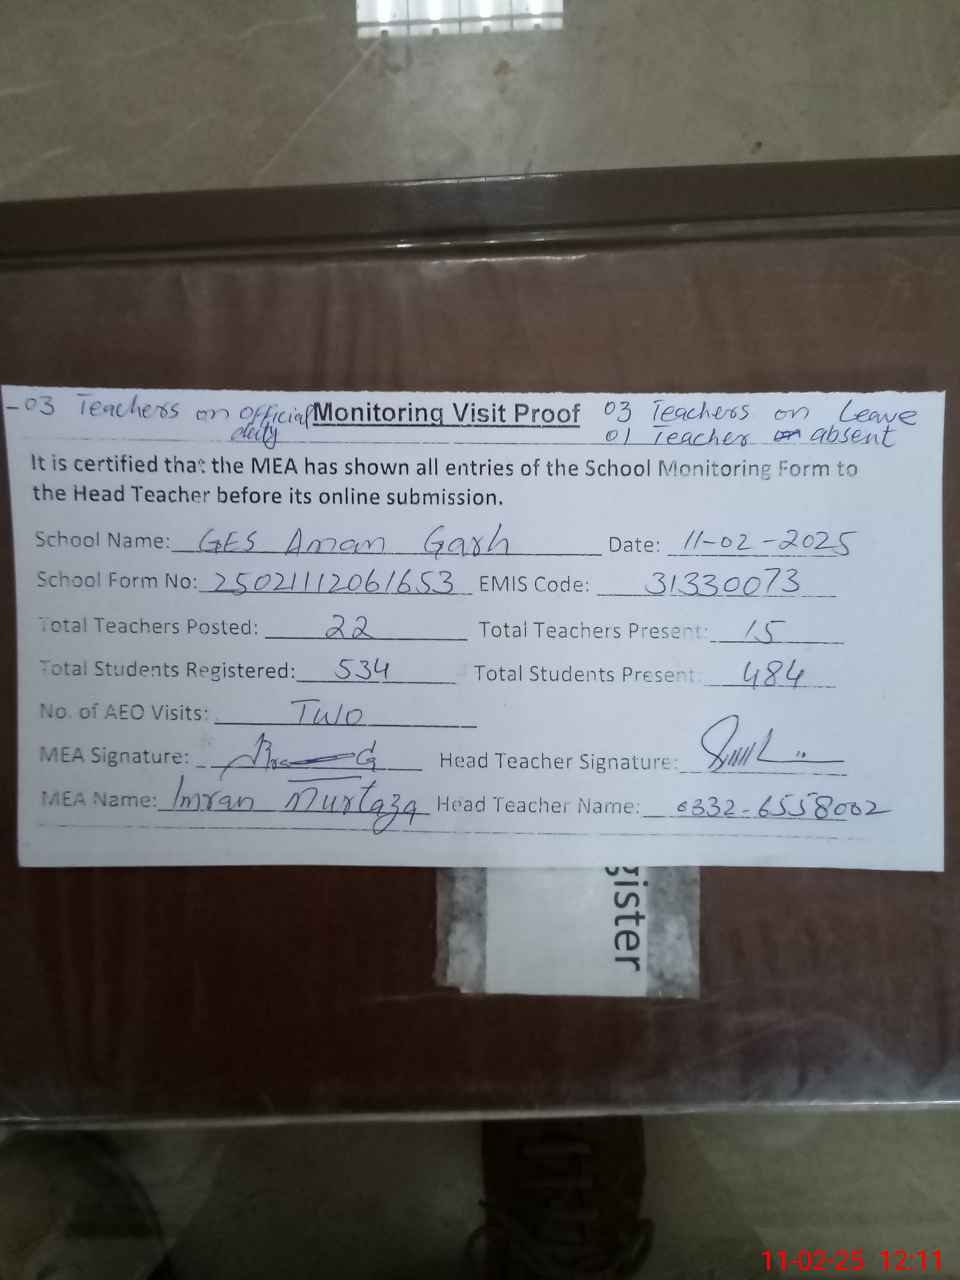 -03 Teachers on official duty Monitoring Visit Proof 03 Teachers on Leave
01 Teacher absent
It is certified that the MEA has shown all entries of the School Monitoring Form to
the Head Teacher before its online submission.
School Name: GES Aman Garh Date: 11-02-2025
School Form No: 25021112061653 EMIS Code: 31330073
Total Teachers Posted: 22 Total Teachers Present: 15
Total Students Registered: 534 Total Students Present: 484
No. of AEO Visits: Two
MEA Signature: Head Teacher Signature:
MEA Name: Imran Murtaza Head Teacher Name: 0332-6558002
gister
11-02-25 12:11